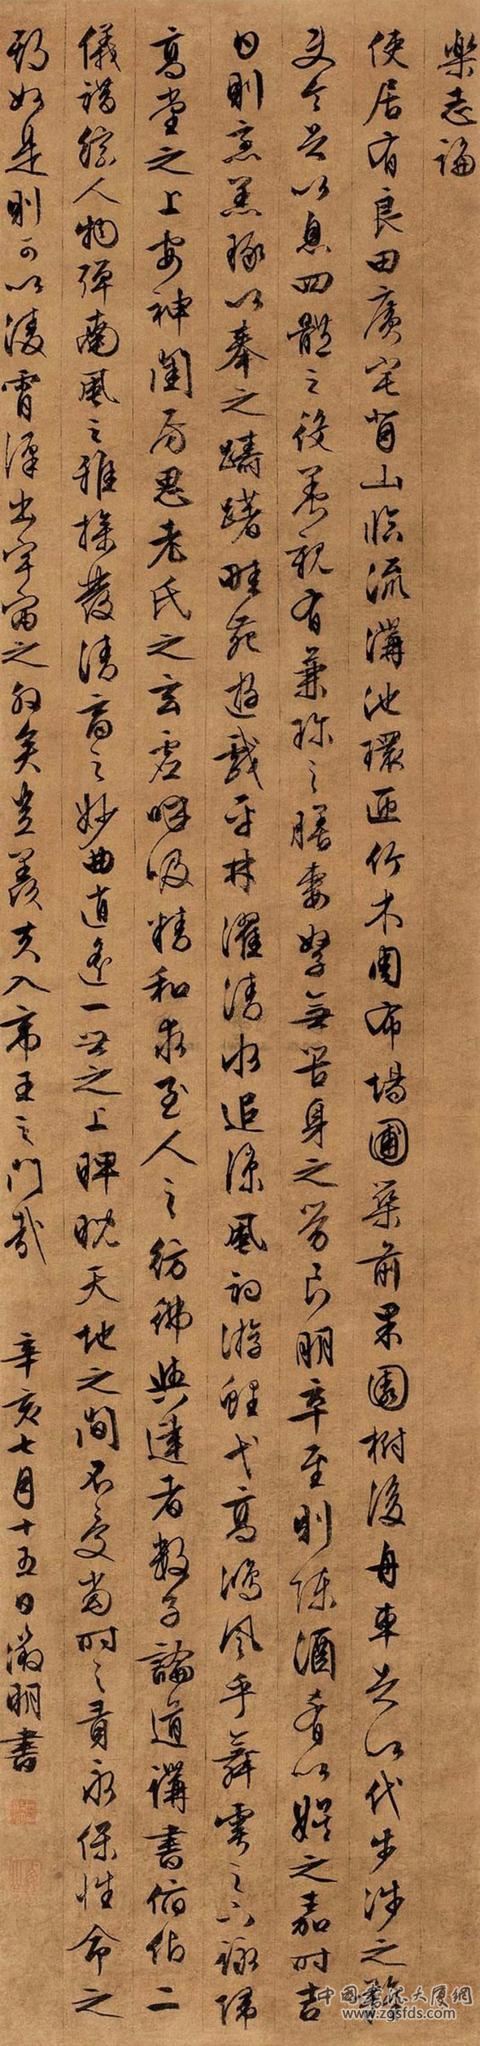 樂志論
使居有良田廣宅背山臨流溝池環匝竹木周布場圃築前果園樹後舟車足以代步涉之難
使令足以息四體之役養親有兼珍之膳妻孥無苦身之勞良朋萃至則陳酒肴以娛之嘉時吉
日則烹羔豚以奉之躊躇畦苑遊戲平林濯清水追涼風釣游鯉弋高鴻風乎舞雩之下詠歸
高堂之上安神閨房思老氏之玄虛呼吸精和求至人之彷彿與達者數子論道講書俯仰二
儀錯綜人物彈南風之雅操發清商之妙曲逍遙一世之上睥睨天地之間不受當時之責永保性命之
期如是則可以淩霄漢出宇宙之外矣豈羨夫入帝王之門哉 辛亥七月十五日徵明書
中國書法大厦網
www.zgsfds.com